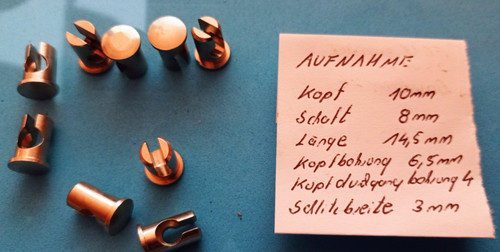 AUFNAHME
Kopf 10mm
Schaft 8mm
Länge 14,5mm
Kopfbohrung 6,5mm
Kopfdurchgang bohrung 4
Schlitzbreite 3mm